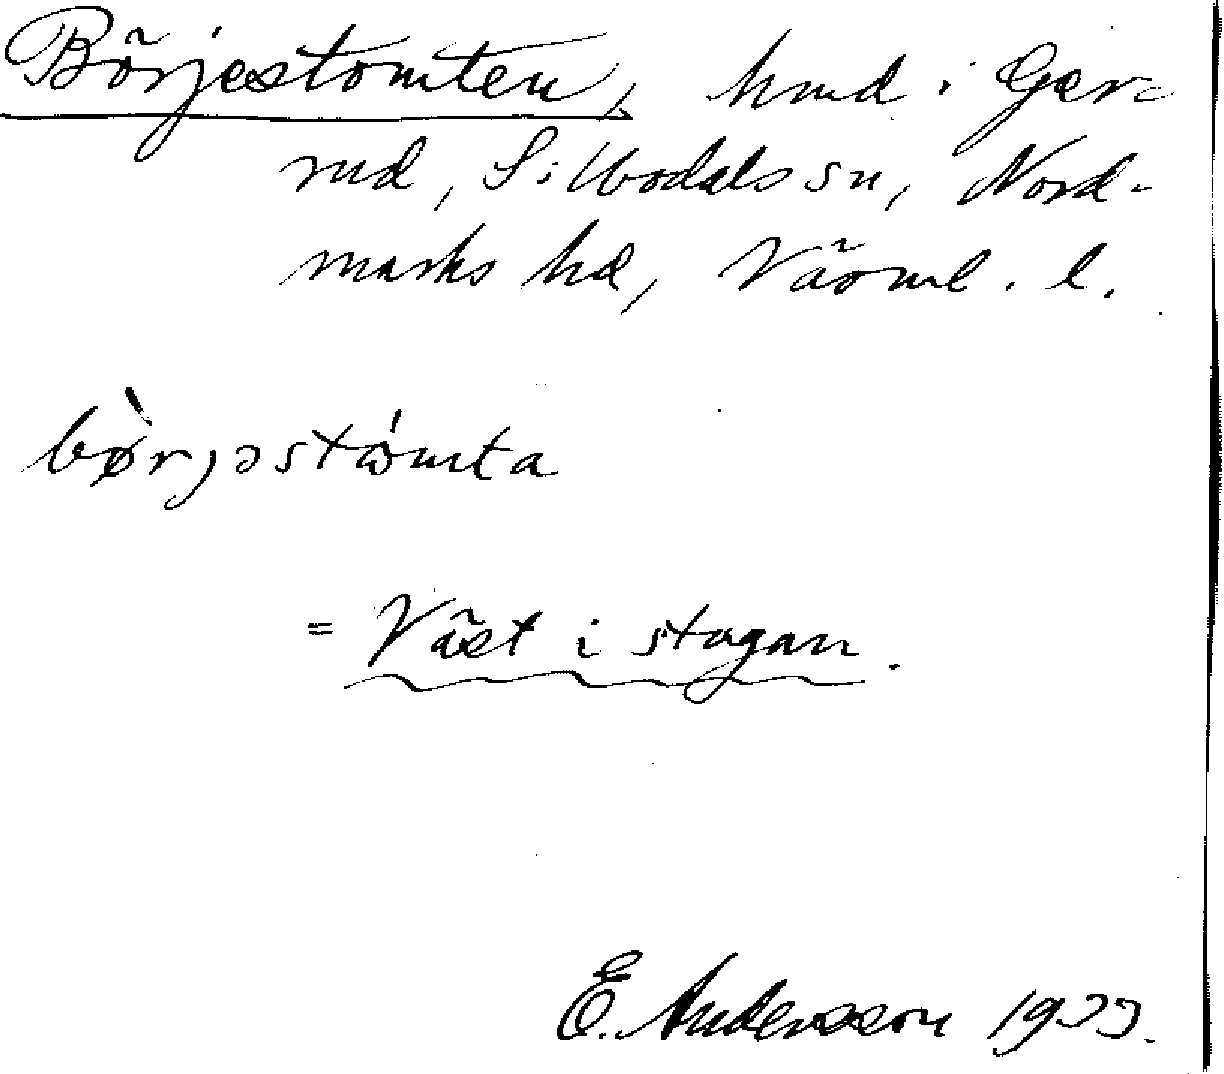 Börjestomten, hmd i Ger-
rud, Sillbodals sn, Nord-
marks hd, Värml. l.
bø̀rjəstómta
= Väst i stugan.
E. Andersson 1933.